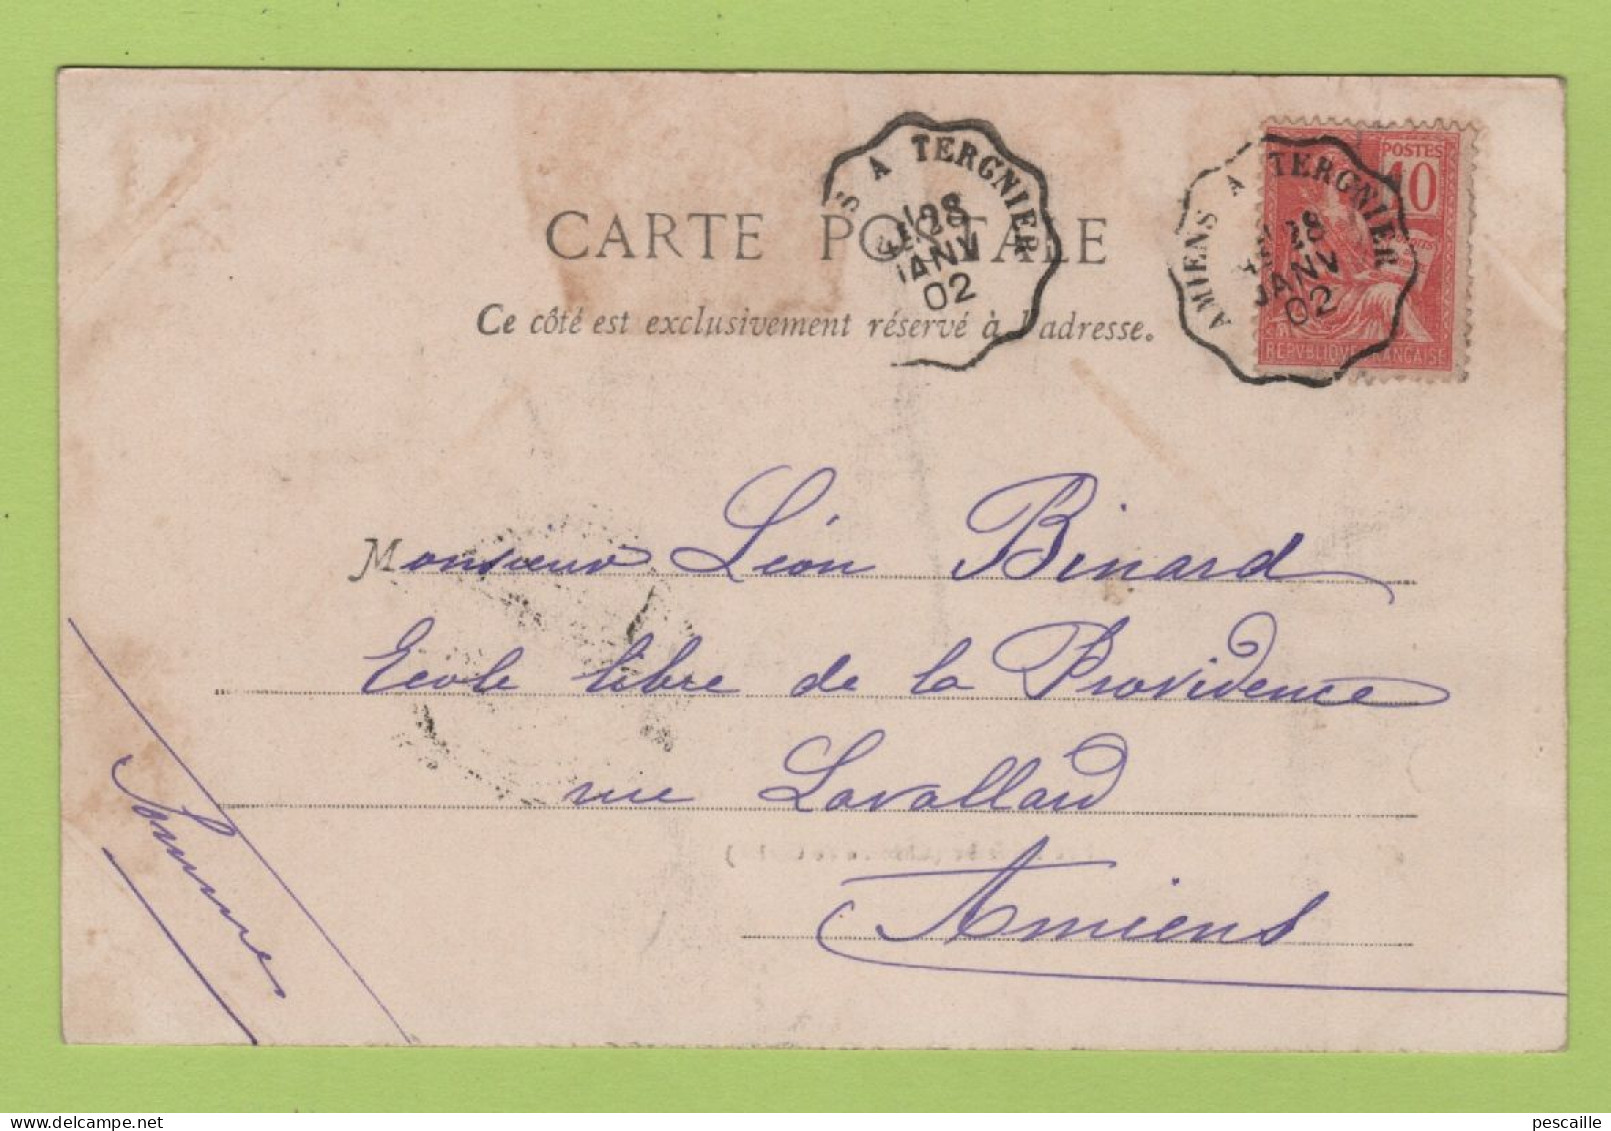 AMIENS A TERGNIER
28
JANV
02
S A TERGNIER
28
JANV
02
POSTES
10
REPVBLIQUE FRANÇAISE
CARTE POSTALE
Ce côté est exclusivement réservé à l'adresse.
Monsieur Léon Binard
Ecole libre de la Providence
rue Lavallard
Amiens
Somme
pescaille